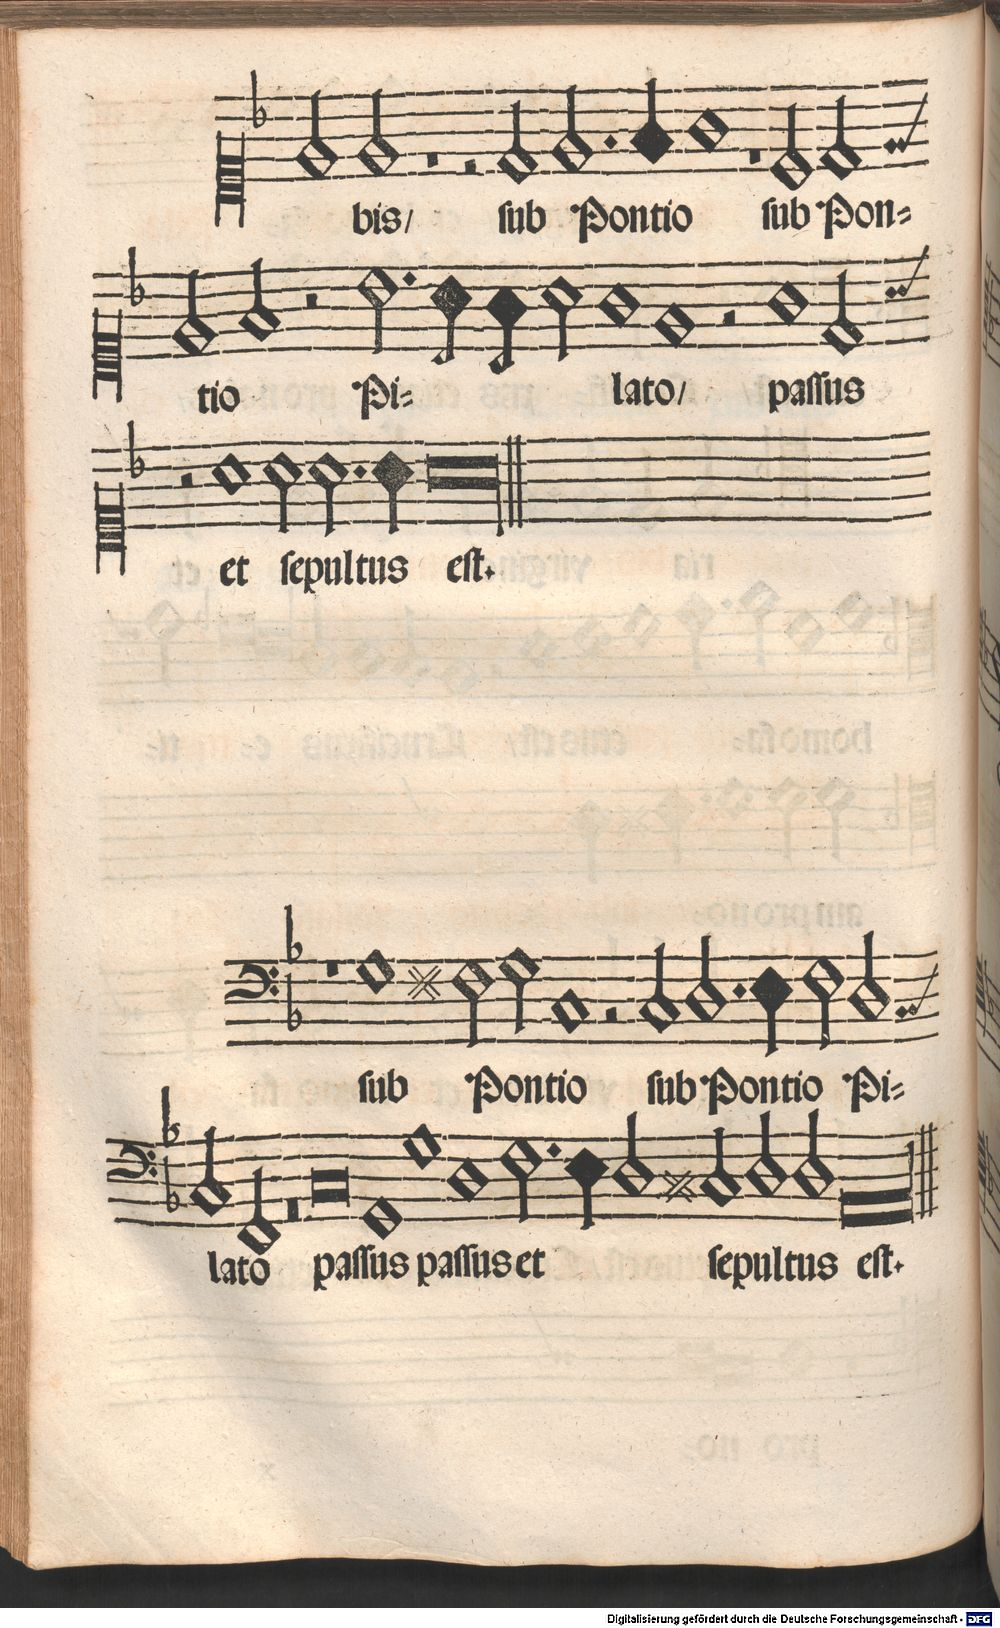 bis/ ſub Pontio ſub Pon⸗
tio Pi⸗ lato/ paſſus
et ſepultus eſt.
ſub Pontio ſub Pontio Pi⸗
lato paſſus paſſus et ſepultus eſt.
Digitalisierung gefördert durch die Deutsche Forschungsgemeinschaft - DFG